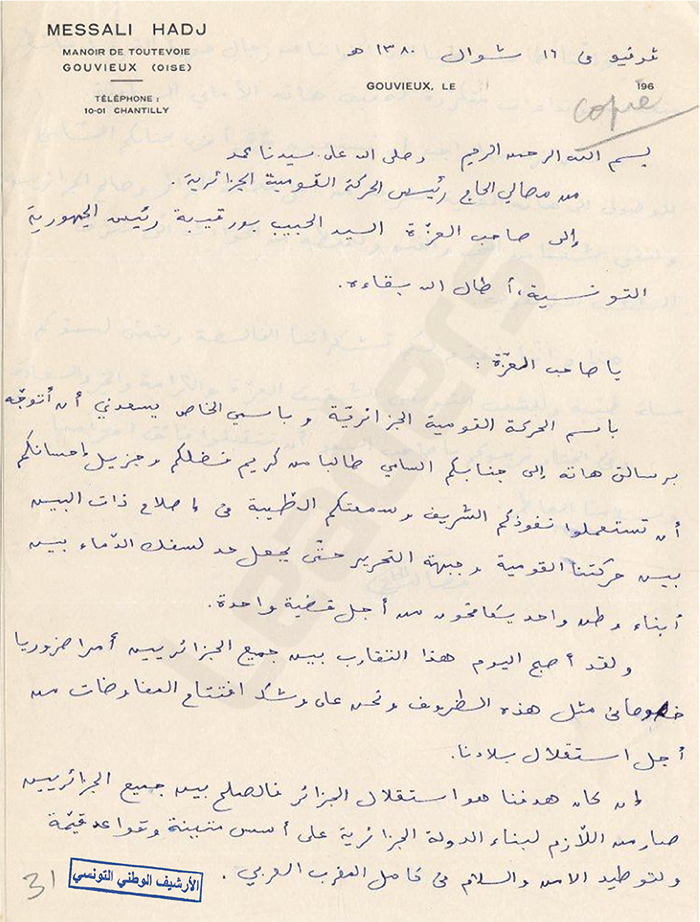 MESSALI HADJ
MANOIR DE TOUTEVOIE
GOUVIEUX (OISE)
TÉLÉPHONE :
10-01 CHANTILLY
غوفيو في ١٦ شوال ١٣٨٠ هـ
GOUVIEUX, LE 196
copie
بسم الله الرحمن الرحيم وصلى الله على سيدنا محمد
من مصالي الحاج رئيس الحركة القومية الجزائرية .
إلى صاحب العزّة السيد الحبيب بورقيبة رئيس الجمهورية
التونسية، أطال الله بقاءه.
يا صاحب المعزّة :
باسم الحركة القومية الجزائرية وباسمي الخاص يسعدني أن أتوجّه
برسالتي هاته إلى جنابكم السامي طالبا من كريم فضلكم وجزيل إحسانكم
أن تستعملوا نفوذكم الشريف وسمعتكم الطيبة في إصلاح ذات البين
بين حركتنا القومية وجبهة التحرير حتّى يجعل حد لسفك الدّماء بين
أبناء وطن واحد يكافحون من أجل قضية واحدة.
ولقد أصبح اليوم هذا التقارب بين جميع الجزائريين أمرا ضروريا
خصوصا في مثل هذه الظروف ونحن على وشك افتتاح المفاوضات من
أجل استقلال بلادنا.
وإن كان هدفنا هو استقلال الجزائر فالصلح بين جميع الجزائريين
صار من اللّازم لبناء الدولة الجزائرية على أسس متينة وقواعد قيّمة
ولتوطيد الامن والسلام في كامل المغرب العربي .
31
الأرشيف الوطني التونسي
Leaders